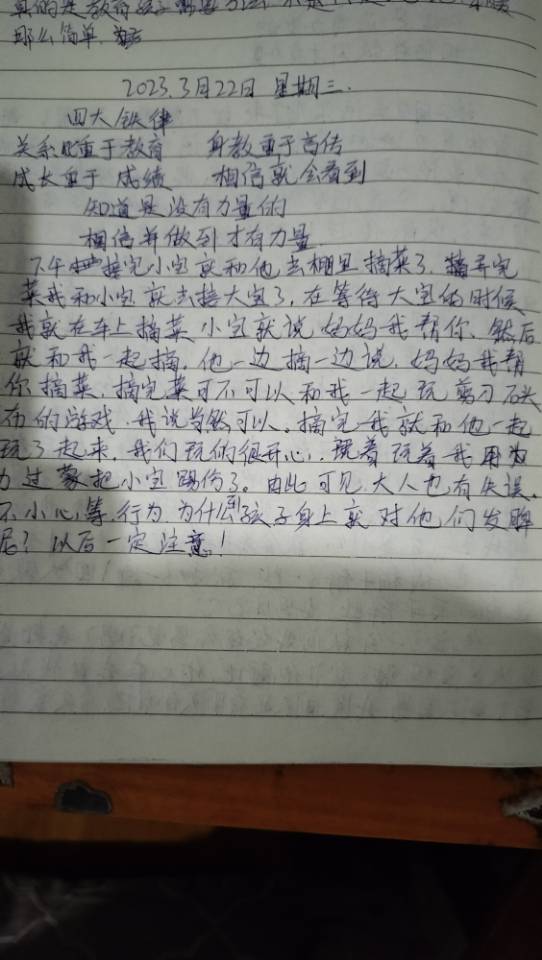 真的是教育孩子需要方法 不是
那么简单.
2023.3月22日 星期三.
四大铁律
关系比重于教育 身教重于言传
成长重于成绩 相信就会看到
知道是没有力量的
相信并做到才有力量
下午接完小宝就和他去棚里摘菜了.摘弄完
菜我和小宝就去接大宝了.在等待大宝的时候
我就在车上摘菜小宝就说妈妈我帮你.然后
就和我一起摘.他一边摘一边说.妈妈我帮
你摘菜.摘完菜可不可以和我一起玩剪刀石头
布的游戏.我说当然可以.摘完我就和他一起
玩了起来.我们玩的很开心.玩着玩着我用力
力过 把小宝踢伤了.由此可见大人也有失误.
不小心,等行为为什么到孩子身上就对他们发脾
气?以后一定注意!